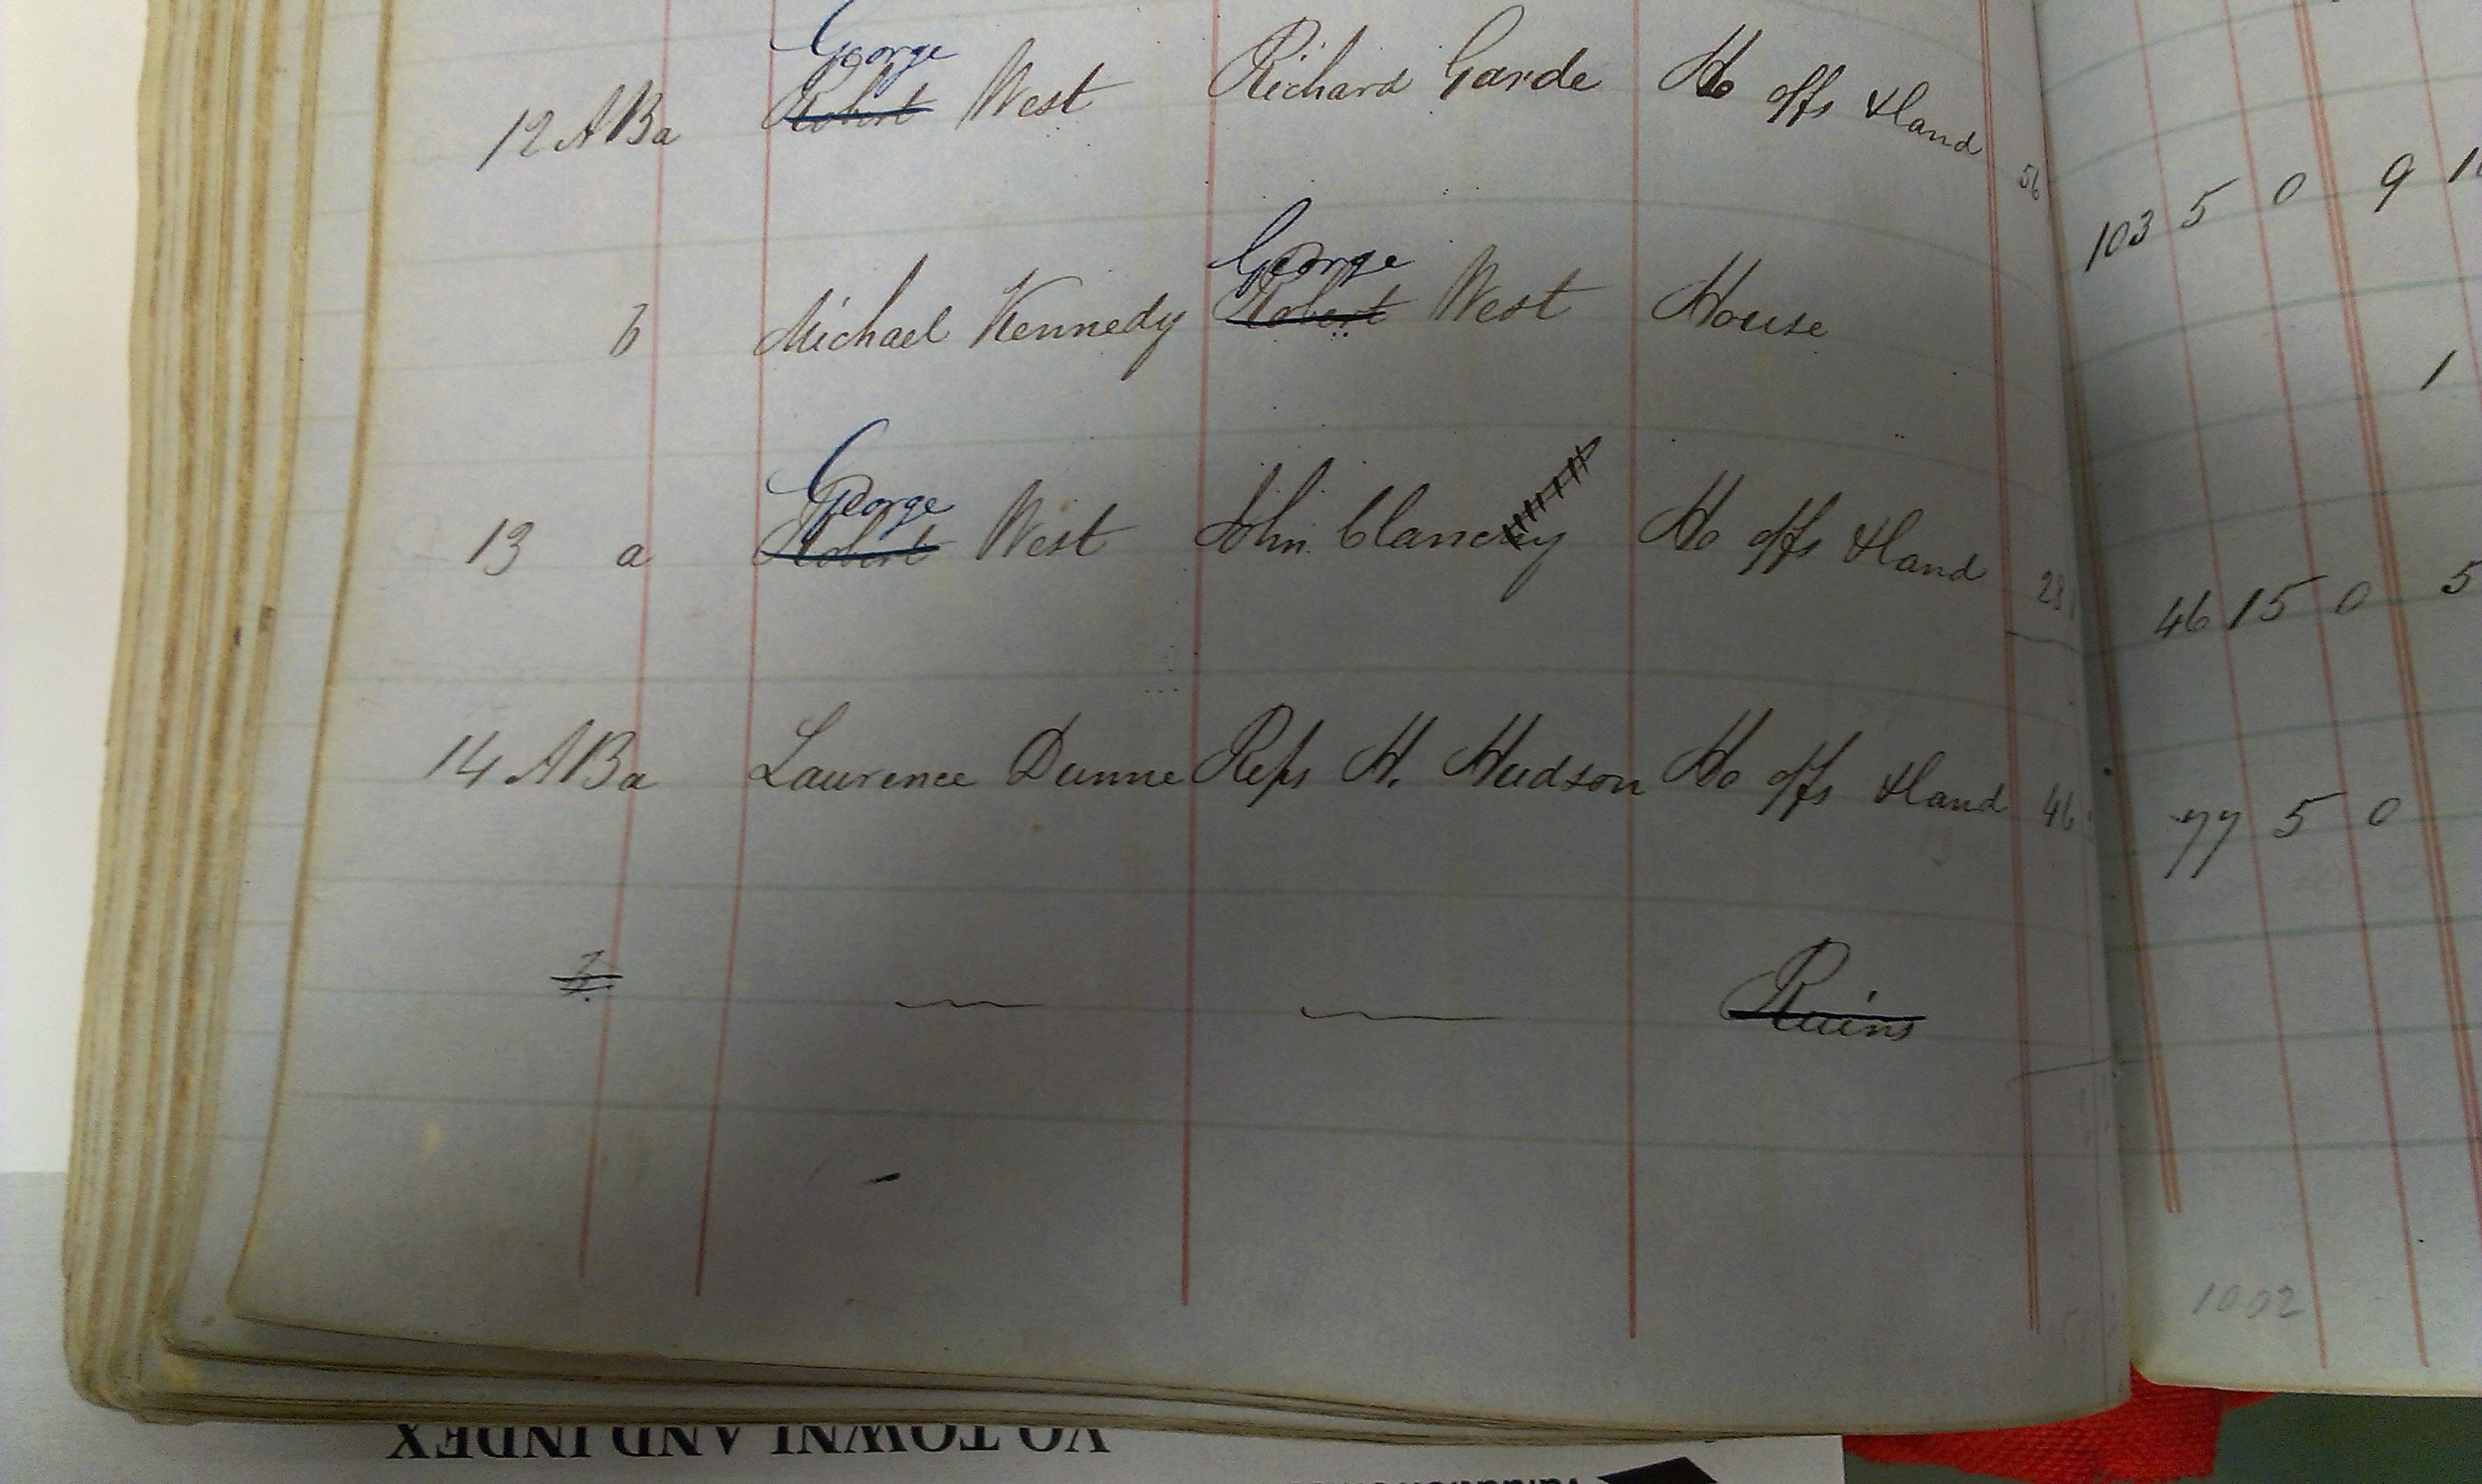 George
12 A Ba Robert West Richard Garde Ho offs & land 56 103 5 0 9
George
b Michael Kennedy Robert West House 1
George
13 a Robert West John Clancy Ho offs & land 28 46 15 0 5
14 A Ba Laurence Dunne Reps H. Hudson Ho offs & land 46 77 5 0
b Ruins
1002
VO TOWNLAND INDEX